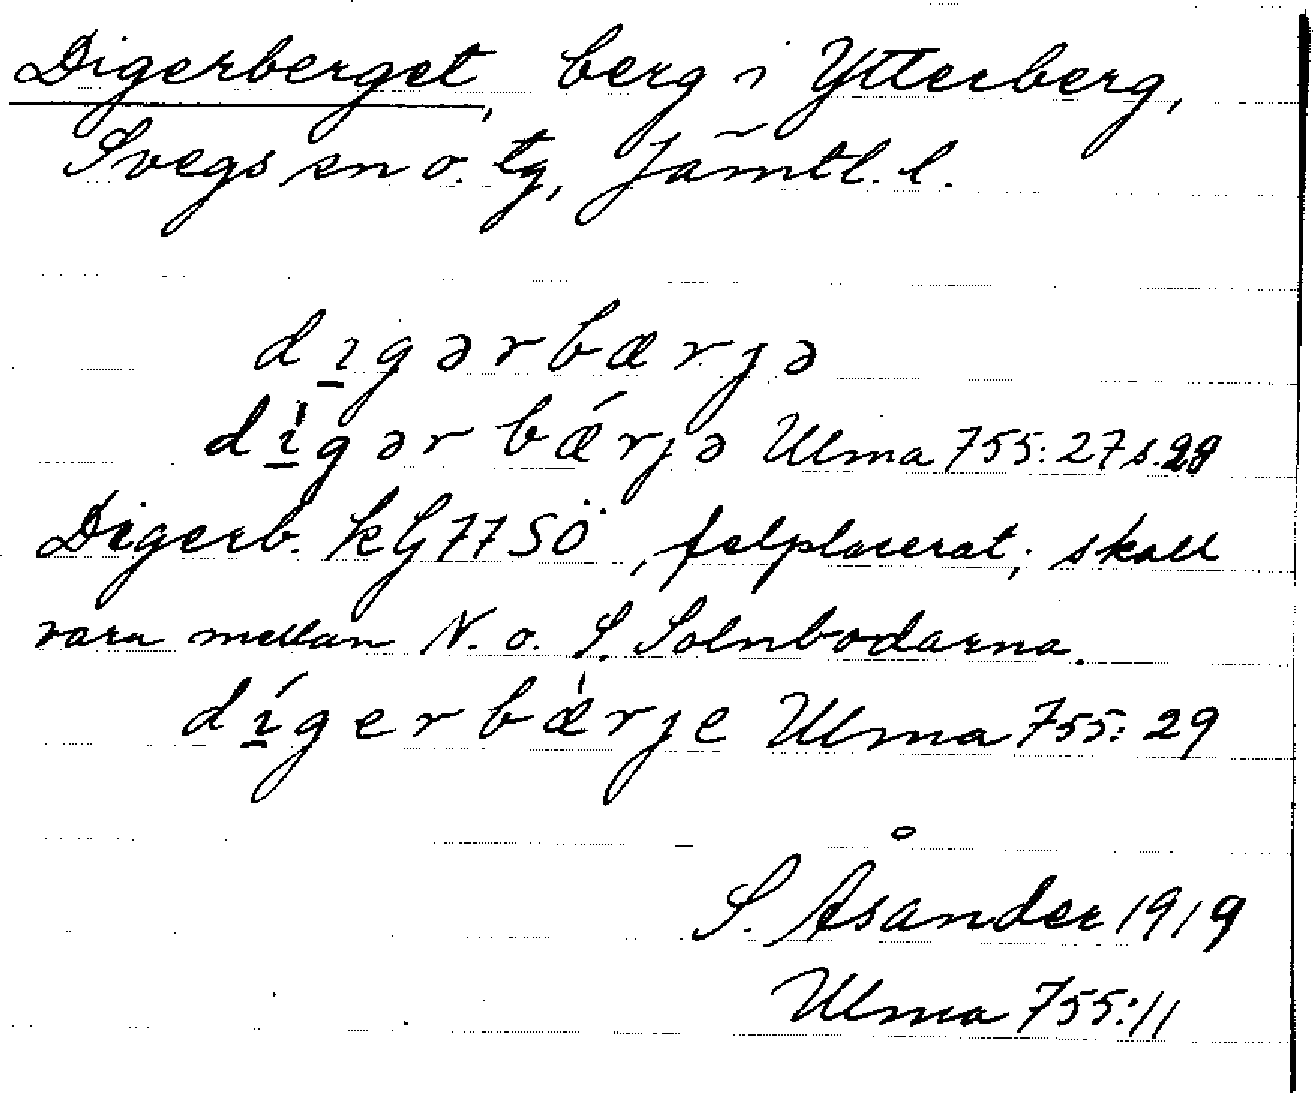 Digerberget, berg i Ytterberg,
Svegs sn o. tg, Jämtl. l.
dı̲gərbærjə
dı̲̀gər bǽrjə Ulma 755:27 s.28
Digerb. kG 77 SÖ, felplacerat; skall
vara mellan N. o. S. Solnbodarna.
dı̲́gerbæ̀rje Ulma 755:29
S. Åsander 1919
Ulma 755:11